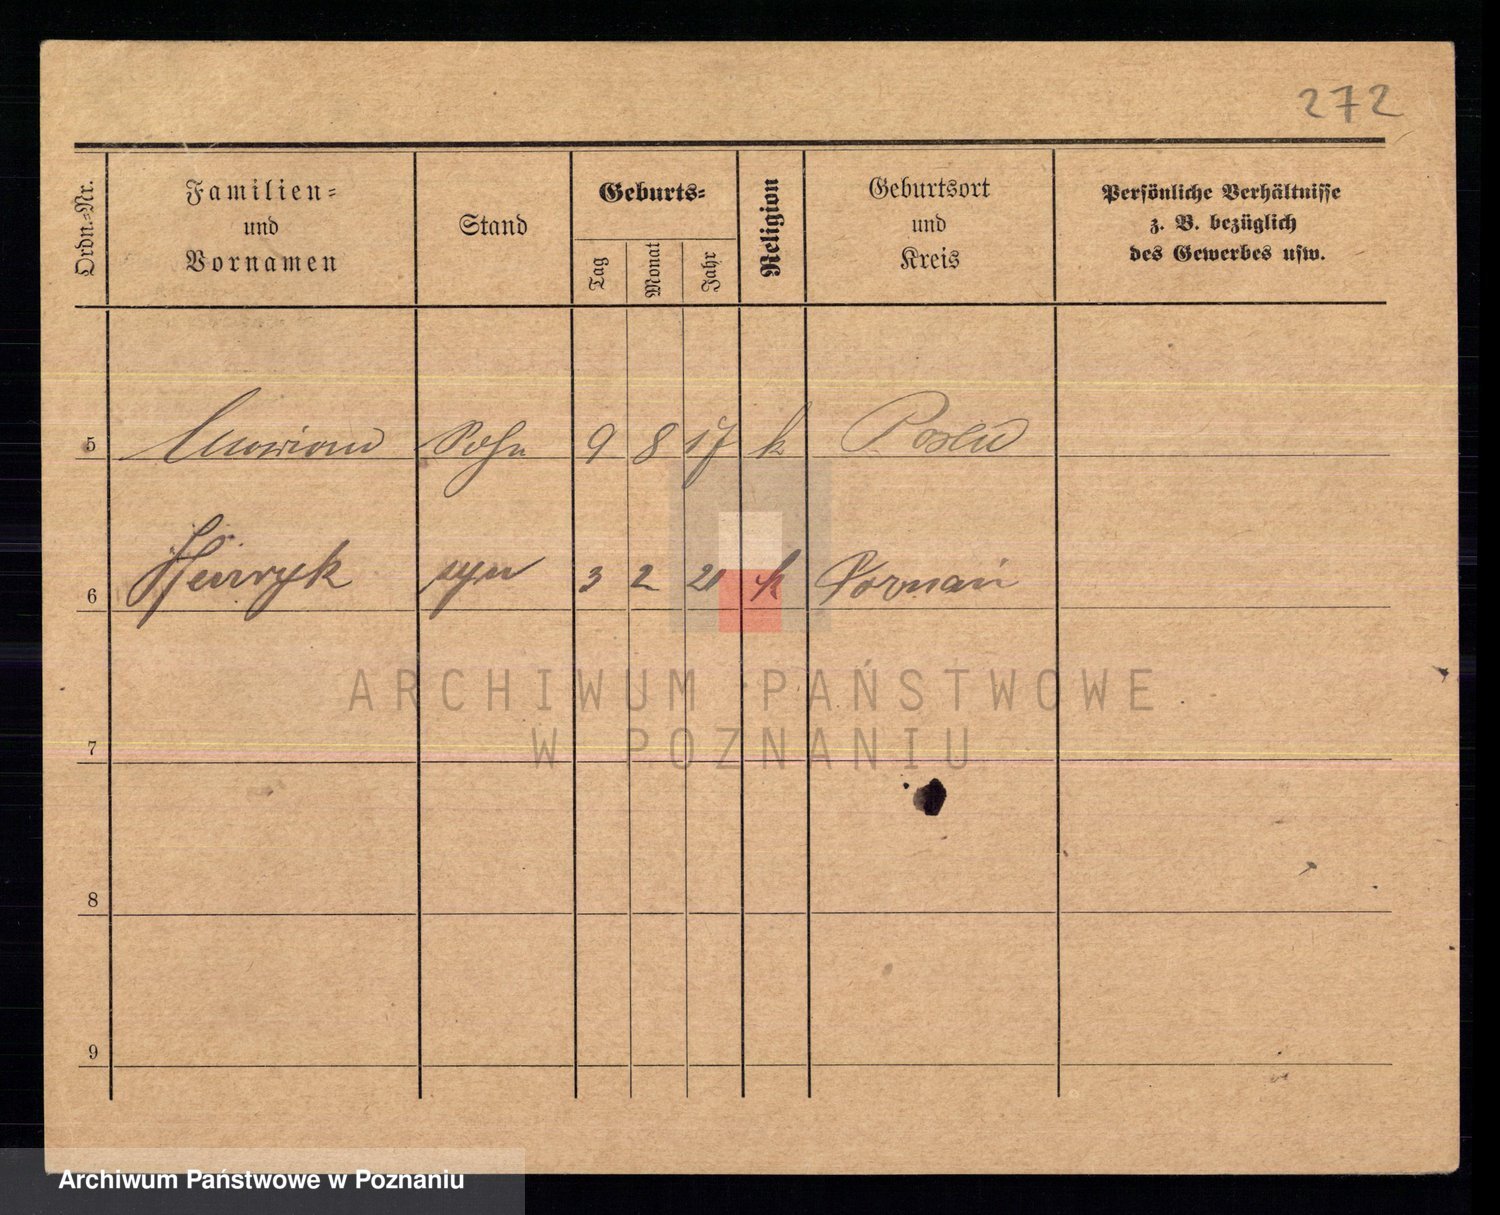 272
Ordn.-Nr.
Familien-
und
Vornamen
Stand
Geburts-
Tag
Monat
Jahr
Religion
Geburtsort
und
Kreis
Persönliche Verhältnisse
z. B. bezüglich
des Gewerbes usw.
5 Marian Sohn 9 8 17 k Posen
6 Henryk syn 3 2 21 k Poznań
ARCHIWUM PAŃSTWOWE
W POZNANIU
7
8
9
Archiwum Państwowe w Poznaniu